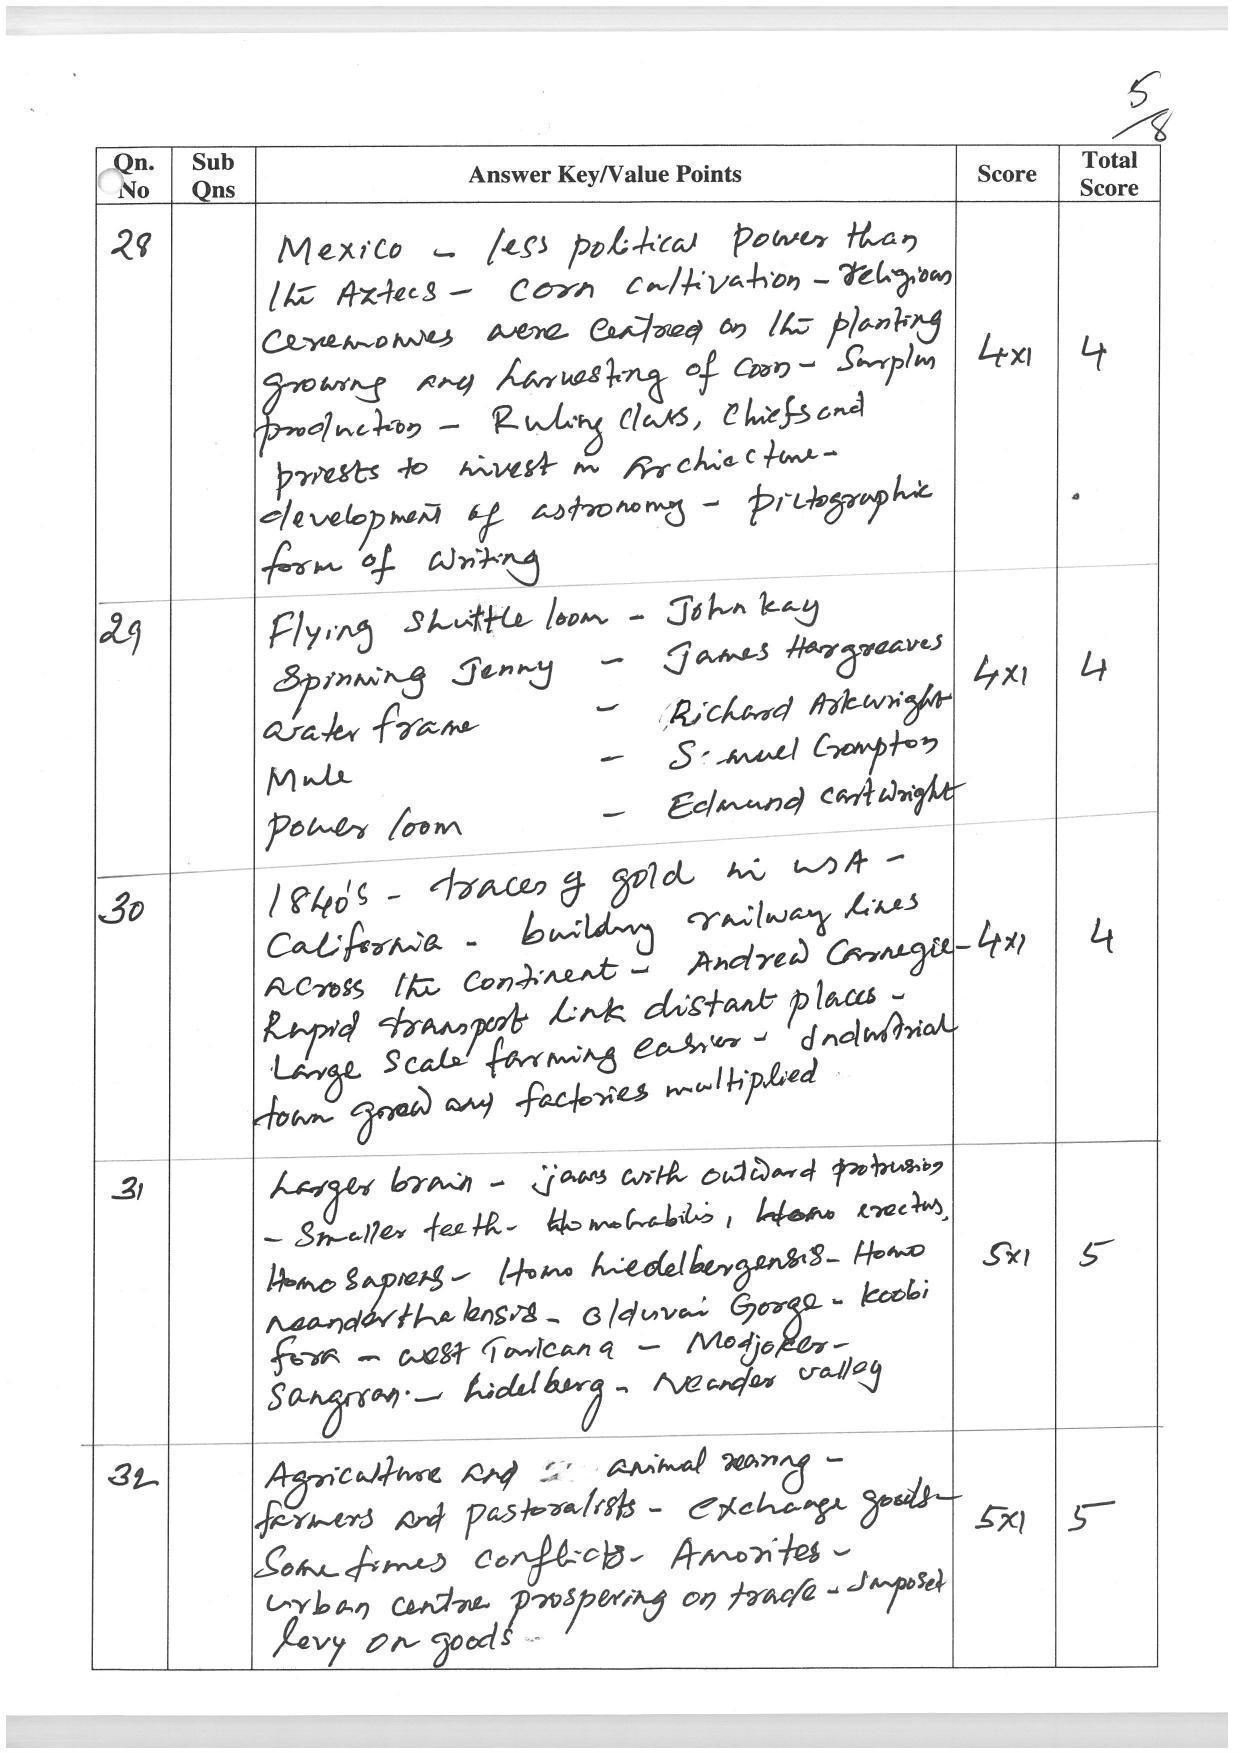 5/8
Qn. No Sub Qns Answer Key/Value Points Score Total Score
28 Mexico - less political power than
the Aztecs - corn cultivation - religious
ceremonies were centred on the planting
growing and harvesting of corn - Surplus 4x1 4
production - Ruling class, chiefs and
priests to invest in Archiecture -
development of astronomy - pictographic
form of writing
29 Flying Shuttle loom - John kay
Spinning Jenny - James Hargreaves 4x1 4
water frame - Richard Arkwright
Mule - Samuel Crompton
power loom - Edmund cartwright
30 1840's - traces of gold in USA -
California - building railway lines
across the continent - Andrew Carnegie - 4x1 4
Rapid transport link distant places -
Large scale farming easier - Industrial
town grew and factories multiplied
31 Larger brain - jaws with outward protrusion
- Smaller teeth - Homohabilis, Homo erectus,
Homo sapiens - Homo hiedelbergensis - Homo 5x1 5
neanderthalensis - Olduvai Gorge - koobi
fora - west Turkana - Modjoker -
Sangiran - hidelberg - Neander valley
32 Agriculture and animal rearing -
farmers and pastoralists - exchange goods -
Some times conflicts - Amorites - 5x1 5
urban centre prospering on trade - Imposed
levy on goods -